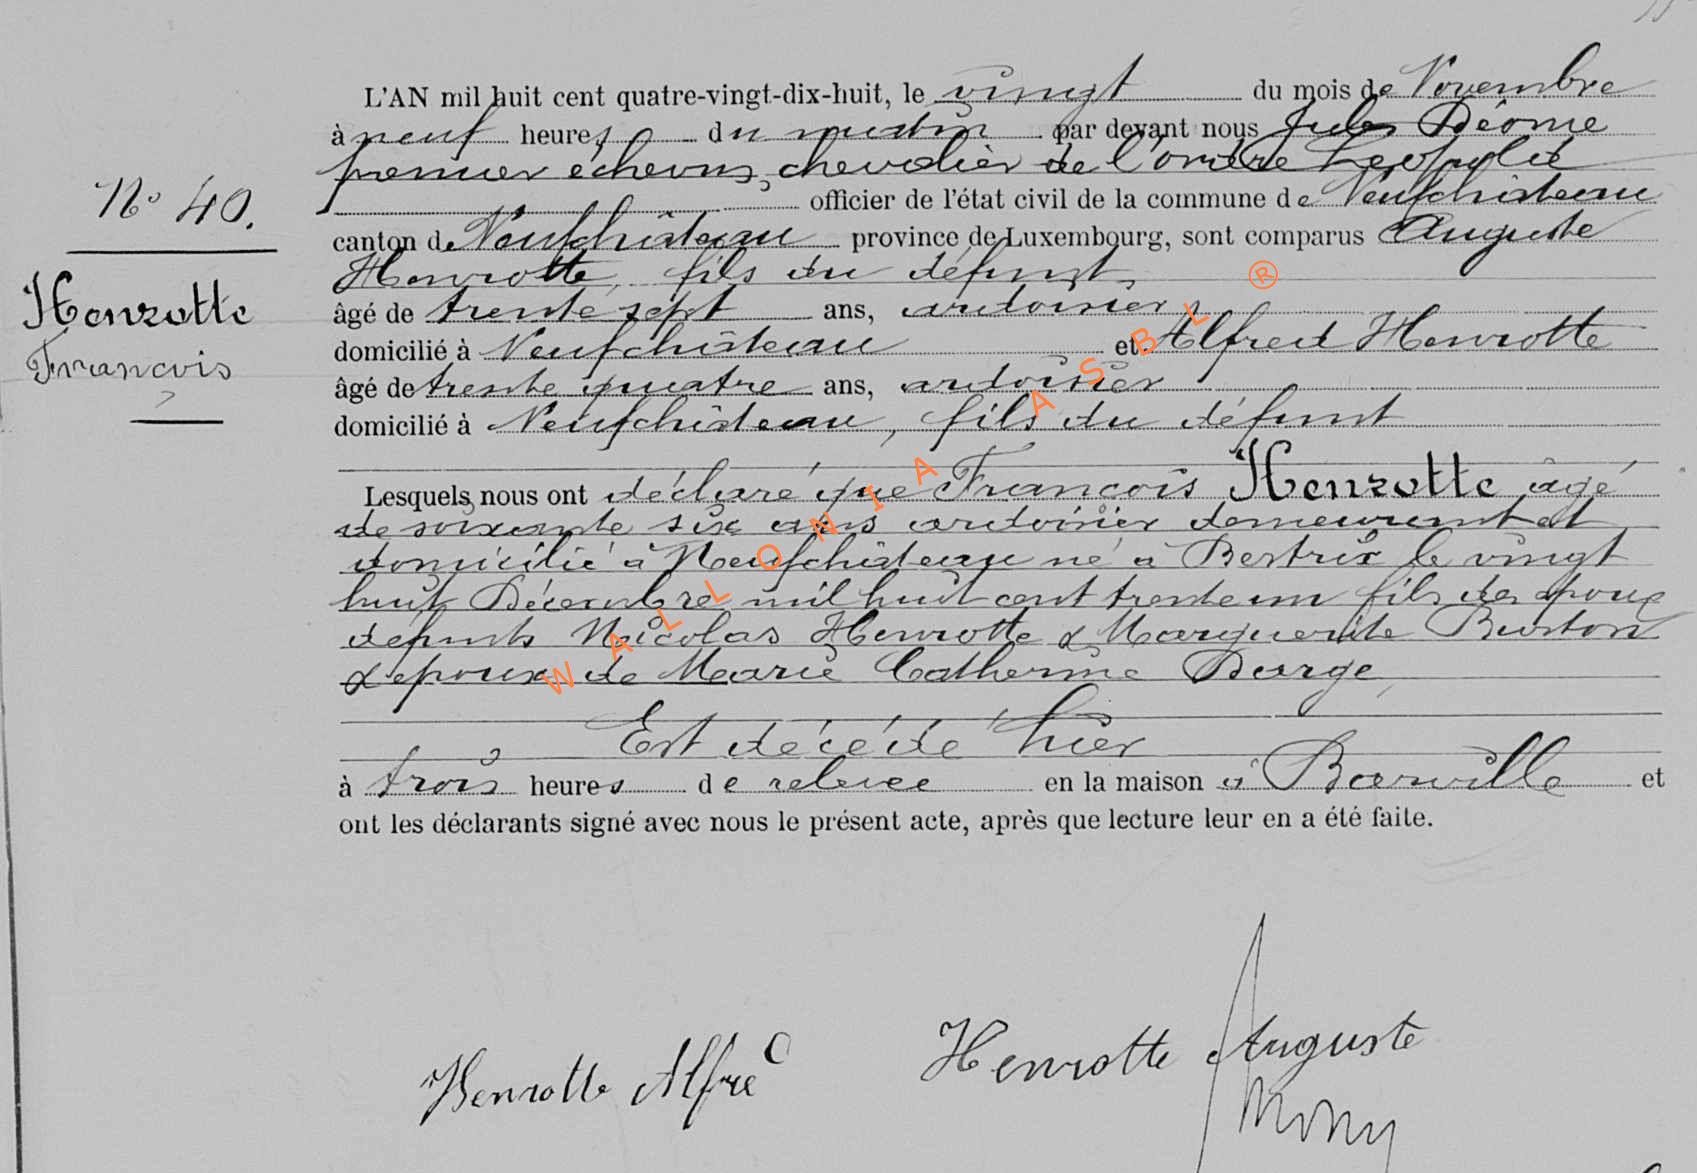 L'AN mil huit cent quatre-vingt-dix-huit, le vingt du mois de Novembre
à neuf heures du matin par devant nous Jules Déome
premier échevin, chevalier de l'ordre Léopold
officier de l'état civil de la commune de Neufchâteau
N° 40.
canton de Neufchâteau province de Luxembourg, sont comparus Auguste
Henrotte, fils du défunt,
Henrotte
François
âgé de trente sept ans, ardoisier
domicilié à Neufchâteau et Alfred Henrotte
âgé de trente quatre ans, ardoisier
domicilié à Neufchâteau, fils du défunt
Lesquels nous ont déclaré que François Henrotte âgé
de soixante six ans ardoisier demeurant et
domicilié à Neufchâteau né à Bertrix le vingt
huit Décembre mil huit cent trente un fils des époux
défunts Nicolas Henrotte & Marguerite Burton
& époux de Marie Catherine Barge,
Est décédé hier
à trois heures de relevée en la maison à Warmifontaine et
ont les déclarants signé avec nous le présent acte, après que lecture leur en a été faite.
Henrotte Alfred
Henrotte Auguste
WALLONIA ASBL ®